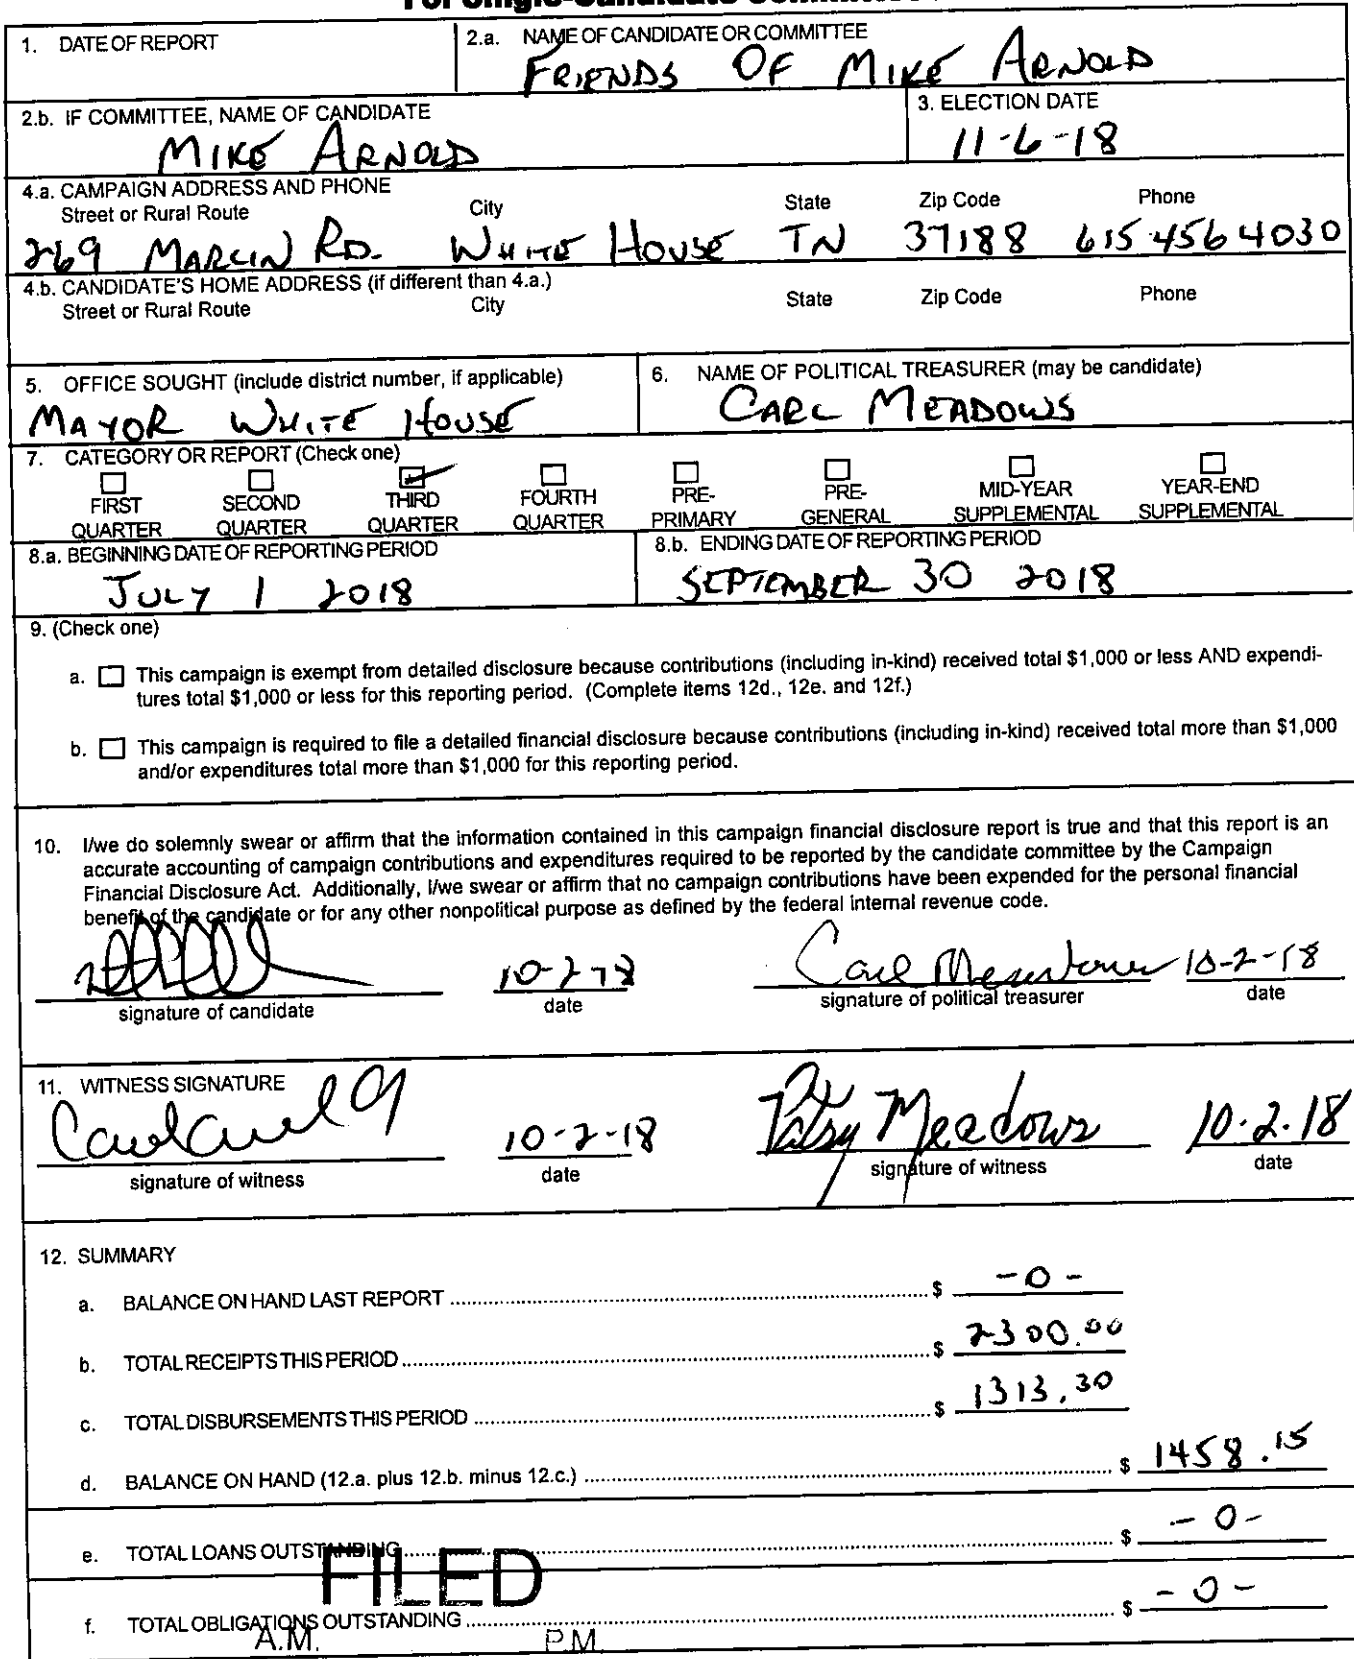 For Single-Candidate Committee
1. DATE OF REPORT
2.a. NAME OF CANDIDATE OR COMMITTEE
FRIENDS OF MIKE ARNOLD
2.b. IF COMMITTEE, NAME OF CANDIDATE
MIKE ARNOLD
3. ELECTION DATE
11-6-18
4.a. CAMPAIGN ADDRESS AND PHONE
Street or Rural Route City State Zip Code Phone
269 MARLIN RD. WHITE HOUSE TN 37188 615 456 4030
4.b. CANDIDATE'S HOME ADDRESS (if different than 4.a.)
Street or Rural Route City State Zip Code Phone
5. OFFICE SOUGHT (include district number, if applicable)
MAYOR WHITE HOUSE
6. NAME OF POLITICAL TREASURER (may be candidate)
CARL MEADOWS
7. CATEGORY OR REPORT (Check one)
FIRST QUARTER
SECOND QUARTER
THIRD QUARTER
FOURTH QUARTER
PRE-PRIMARY
PRE-GENERAL
MID-YEAR SUPPLEMENTAL
YEAR-END SUPPLEMENTAL
8.a. BEGINNING DATE OF REPORTING PERIOD
JULY 1 2018
8.b. ENDING DATE OF REPORTING PERIOD
SEPTEMBER 30 2018
9. (Check one)
a. This campaign is exempt from detailed disclosure because contributions (including in-kind) received total $1,000 or less AND expendi-
tures total $1,000 or less for this reporting period. (Complete items 12d., 12e. and 12f.)
b. This campaign is required to file a detailed financial disclosure because contributions (including in-kind) received total more than $1,000
and/or expenditures total more than $1,000 for this reporting period.
10. I/we do solemnly swear or affirm that the information contained in this campaign financial disclosure report is true and that this report is an
accurate accounting of campaign contributions and expenditures required to be reported by the candidate committee by the Campaign
Financial Disclosure Act. Additionally, I/we swear or affirm that no campaign contributions have been expended for the personal financial
benefit of the candidate or for any other nonpolitical purpose as defined by the federal internal revenue code.
10-2-18 Carl Meadows 10-2-18
signature of candidate date signature of political treasurer date
11. WITNESS SIGNATURE
10-2-18 Patsy Meadows 10.2.18
signature of witness date signature of witness date
12. SUMMARY
a. BALANCE ON HAND LAST REPORT $ -0-
b. TOTAL RECEIPTS THIS PERIOD $ 2300.00
c. TOTAL DISBURSEMENTS THIS PERIOD $ 1313.30
d. BALANCE ON HAND (12.a. plus 12.b. minus 12.c.) $ 1458.15
e. TOTAL LOANS OUTSTANDING $ -0-
FILED
f. TOTAL OBLIGATIONS OUTSTANDING $ -0-
A.M. P.M.